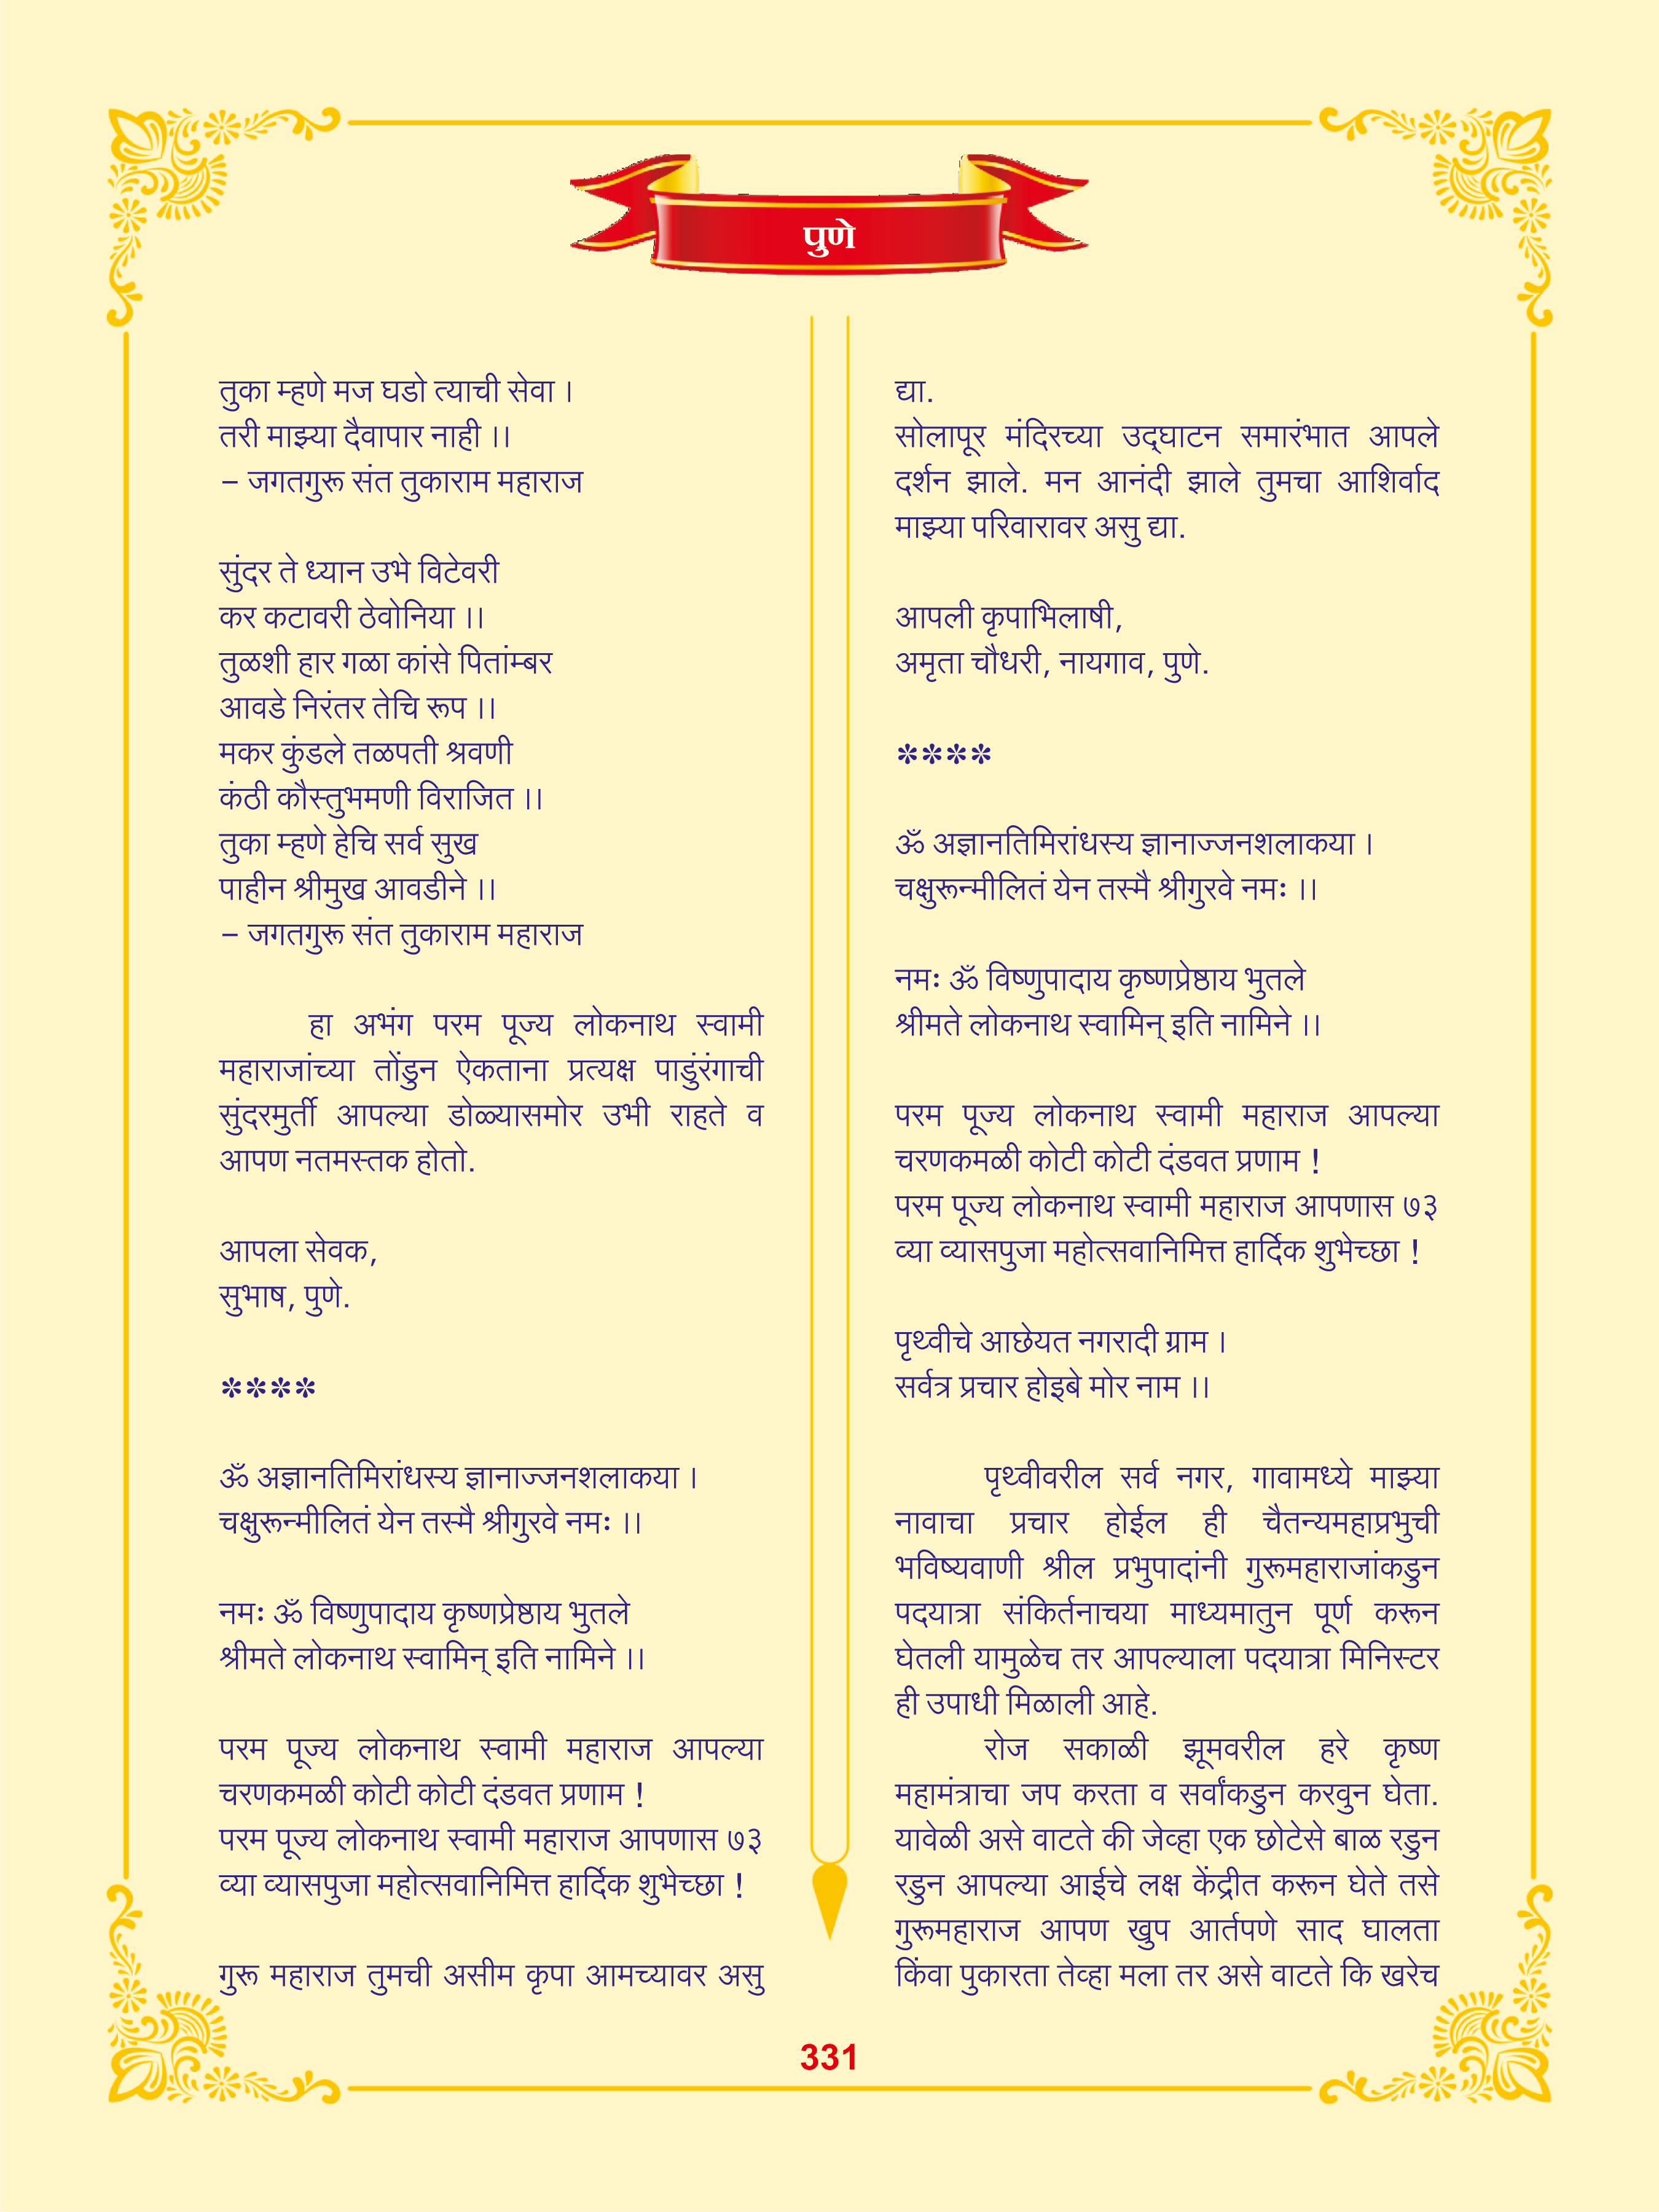 पुणे
तुका म्हणे मज घडो त्याची सेवा ।
तरी माझ्या दैवापार नाही ।।
– जगतगुरू संत तुकाराम महाराज
सुंदर ते ध्यान उभे विटेवरी
कर कटावरी ठेवोनिया ।।
तुळशी हार गळा कांसे पितांम्बर
आवडे निरंतर तेचि रूप ।।
मकर कुंडले तळपती श्रवणी
कंठी कौस्तुभमणी विराजित ।।
तुका म्हणे हेचि सर्व सुख
पाहीन श्रीमुख आवडीने ।।
– जगतगुरू संत तुकाराम महाराज
हा अभंग परम पूज्य लोकनाथ स्वामी
महाराजांच्या तोंडुन ऐकताना प्रत्यक्ष पाडुंरंगाची
सुंदरमुर्ती आपल्या डोळ्यासमोर उभी राहते व
आपण नतमस्तक होतो.
आपला सेवक,
सुभाष, पुणे.
****
ॐ अज्ञानतिमिरांधस्य ज्ञानाज्जनशलाकया ।
चक्षुरून्मीलितं येन तस्मै श्रीगुरवे नमः ।।
नमः ॐ विष्णुपादाय कृष्णप्रेष्ठाय भुतले
श्रीमते लोकनाथ स्वामिन् इति नामिने ।।
परम पूज्य लोकनाथ स्वामी महाराज आपल्या
चरणकमळी कोटी कोटी दंडवत प्रणाम !
परम पूज्य लोकनाथ स्वामी महाराज आपणास ७३
व्या व्यासपुजा महोत्सवानिमित्त हार्दिक शुभेच्छा !
गुरू महाराज तुमची असीम कृपा आमच्यावर असु
द्या.
सोलापूर मंदिरच्या उद्घाटन समारंभात आपले
दर्शन झाले. मन आनंदी झाले तुमचा आशिर्वाद
माझ्या परिवारावर असु द्या.
आपली कृपाभिलाषी,
अमृता चौधरी, नायगाव, पुणे.
****
ॐ अज्ञानतिमिरांधस्य ज्ञानाज्जनशलाकया ।
चक्षुरून्मीलितं येन तस्मै श्रीगुरवे नमः ।।
नमः ॐ विष्णुपादाय कृष्णप्रेष्ठाय भुतले
श्रीमते लोकनाथ स्वामिन् इति नामिने ।।
परम पूज्य लोकनाथ स्वामी महाराज आपल्या
चरणकमळी कोटी कोटी दंडवत प्रणाम !
परम पूज्य लोकनाथ स्वामी महाराज आपणास ७३
व्या व्यासपुजा महोत्सवानिमित्त हार्दिक शुभेच्छा !
पृथ्वीचे आछेयत नगरादी ग्राम ।
सर्वत्र प्रचार होइबे मोर नाम ।।
पृथ्वीवरील सर्व नगर, गावामध्ये माझ्या
नावाचा प्रचार होईल ही चैतन्यमहाप्रभुची
भविष्यवाणी श्रील प्रभुपादांनी गुरूमहाराजांकडुन
पदयात्रा संकिर्तनाचया माध्यमातुन पूर्ण करून
घेतली यामुळेच तर आपल्याला पदयात्रा मिनिस्टर
ही उपाधी मिळाली आहे.
रोज सकाळी झूमवरील हरे कृष्ण
महामंत्राचा जप करता व सर्वांकडुन करवुन घेता.
यावेळी असे वाटते की जेव्हा एक छोटेसे बाळ रडुन
रडुन आपल्या आईचे लक्ष केंद्रीत करून घेते तसे
गुरूमहाराज आपण खुप आर्तपणे साद घालता
किंवा पुकारता तेव्हा मला तर असे वाटते कि खरेच
331